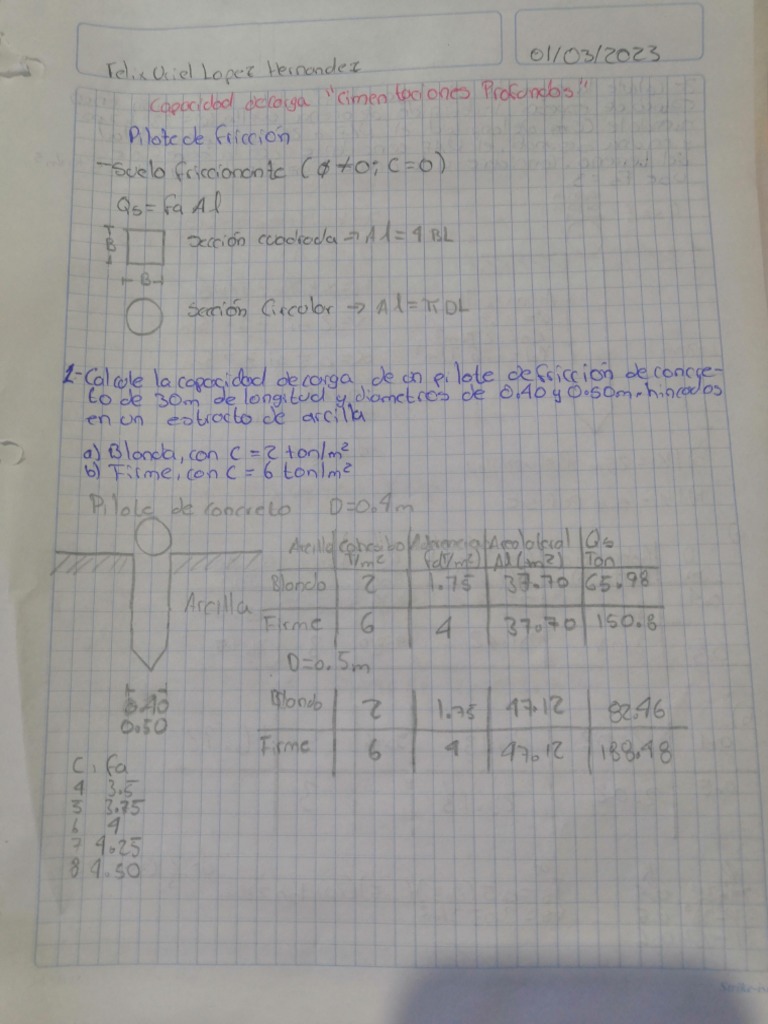 01/03/2023
Felix Uriel Lopez Hernandez
Capacidad de carga "Cimentaciones Profundas"
Pilote de fricción
- Suelo friccionante (Ø≠0; C=0)
Qs = fa Al
B sección cuadrada → Al = 4 BL
B
sección Circular → Al = π DL
1- Calcule la capacidad de carga de un pilote de fricción de concre-
to de 30m de longitud y diametros de 0.40 y 0.50m. hincados
en un estracto de arcilla
a) Blanda, con C = 2 ton/m²
b) Firme, con C = 6 ton/m²
Pilote de concreto D=0.4m
Arcilla Adherencia Area lateral Qs
T/m² fa(T/m²) Al (m²) Ton
Blanda 2 1.75 37.70 65.98
Arcilla
Firme 6 4 37.70 150.8
D=0.5m
0.40
0.50
Blanda 2 1.75 47.12 82.46
Firme 6 4 47.12 188.48
C. fa
4 3.5
5 3.75
6 4
7 4.25
8 4.50